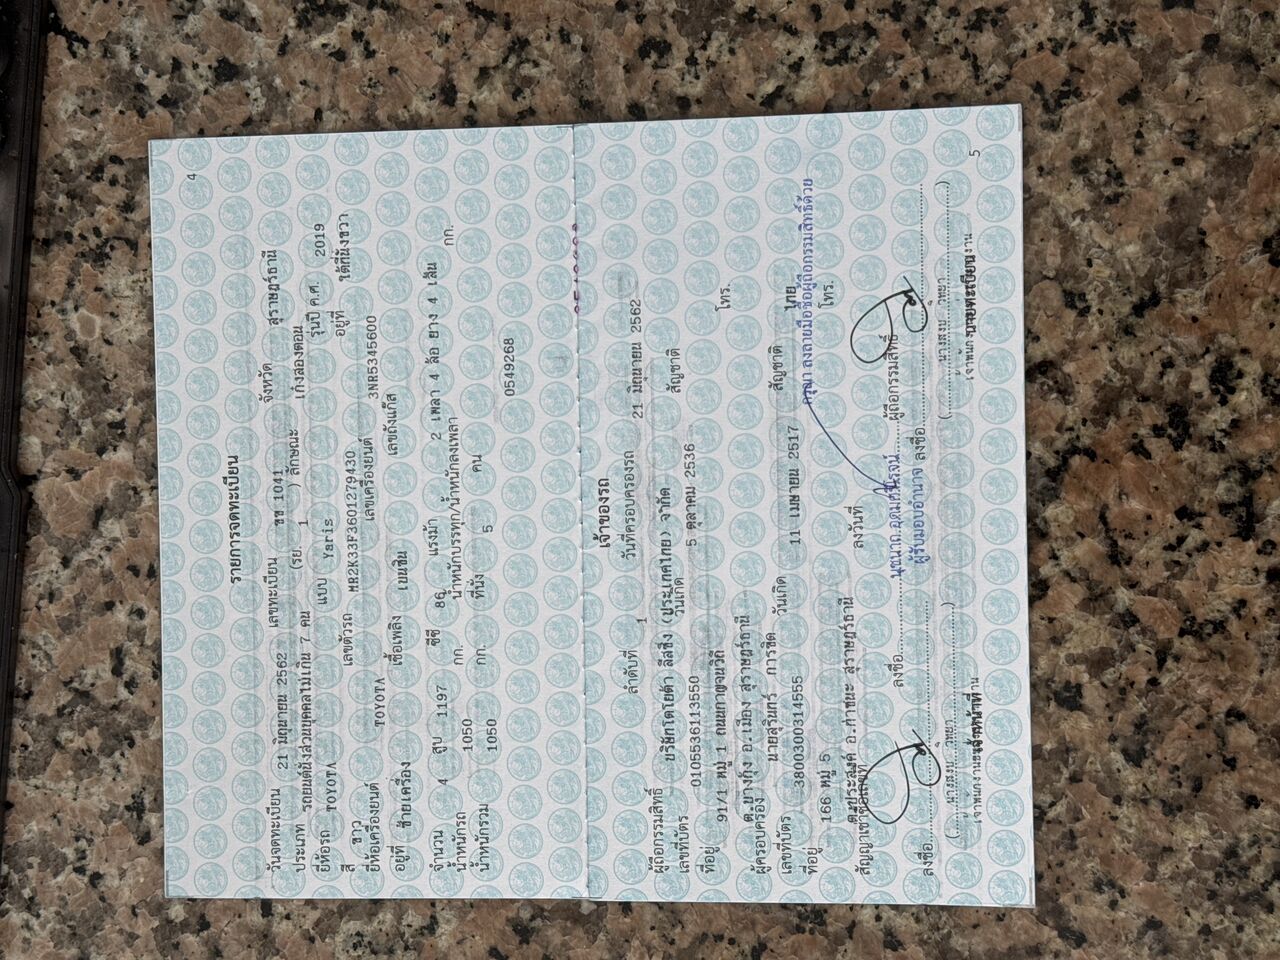 4
รายการจดทะเบียน
วันจดทะเบียน 21 มิถุนายน 2562 เลขทะเบียน ขข 1041 จังหวัด สุราษฎร์ธานี
ประเภท รถยนต์นั่งส่วนบุคคลไม่เกิน 7 คน (รย. 1 ) ลักษณะ เก๋งสองตอน
ยี่ห้อรถ TOYOTA แบบ Yaris รุ่นปี ค.ศ. 2019
สี ขาว เลขตัวรถ MR2K33F3601279430 อยู่ที่ ใต้ที่นั่งขวา
ยี่ห้อเครื่องยนต์ TOYOTA เลขเครื่องยนต์ 3NR5345600
อยู่ที่ ซ้ายเครื่อง เชื้อเพลิง เบนซิน เลขถังแก๊ส
จำนวน 4 สูบ 1197 ซีซี 86 แรงม้า 2 เพลา 4 ล้อ ยาง 4 เส้น
น้ำหนักรถ 1050 กก. น้ำหนักบรรทุก/น้ำหนักลงเพลา กก.
น้ำหนักรวม 1050 กก. ที่นั่ง 5 คน
0549268
เจ้าของรถ
ลำดับที่ 1 วันที่ครอบครองรถ 21 มิถุนายน 2562
ผู้ถือกรรมสิทธิ์ บริษัทโตโยต้า ลีสซิ่ง (ประเทศไทย) จำกัด
เลขที่บัตร 0105536113550 วันเกิด 5 ตุลาคม 2536 สัญชาติ
ที่อยู่ 91/1 หมู่ 1 ถนนกาญจนวิถี
ต.บางกุ้ง อ.เมือง สุราษฎร์ธานี โทร.
ผู้ครอบครอง นายสุรินทร์ การชิด
เลขที่บัตร 3800300314555 วันเกิด 11 เมษายน 2517 สัญชาติ ไทย
ที่อยู่ 166 หมู่ 5 กรุณา ลงลายมือชื่อผู้ถือกรรมสิทธิ์ด้วย
ต.ประสงค์ อ.ท่าชนะ สุราษฎร์ธานี โทร.
สัญญาเช่าซื้อเลขที่ ลงวันที่
ลงชื่อ ผู้ถือกรรมสิทธิ์
ผู้รับมอบอำนาจ
ลงชื่อ ลงชื่อ
นายทะเบียน
5